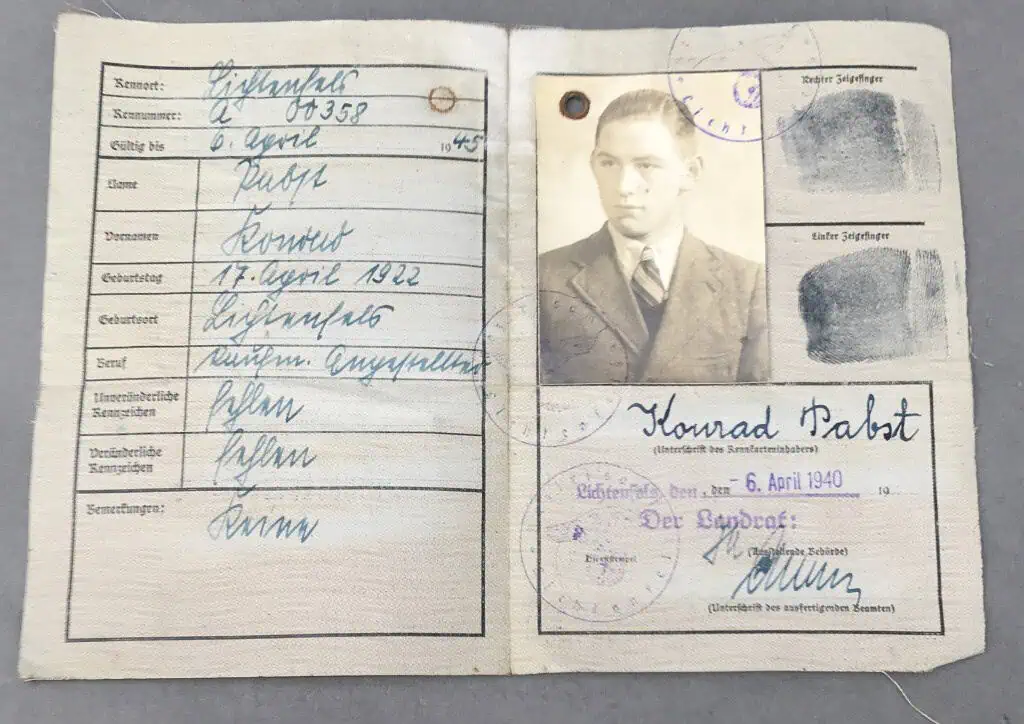 Kennort: Lichtenfels
Kennummer: A 00358
Gültig bis 6. April 1945
Name Pabst
Vornamen Konrad
Geburtstag 17. April 1922
Geburtsort Lichtenfels
Beruf kaufm. Angestellter
Unveränderliche
Kennzeichen fehlen
Veränderliche
Kennzeichen fehlen
Bemerkungen: Keine
Rechter Zeigefinger
Linker Zeigefinger
Konrad Pabst
(Unterschrift des Kennkarteninhabers)
Lichtenfels, den , den - 6. April 1940 19
Der Landrat:
(Ausstellende Behörde)
Dienststempel
(Unterschrift des ausfertigenden Beamten)